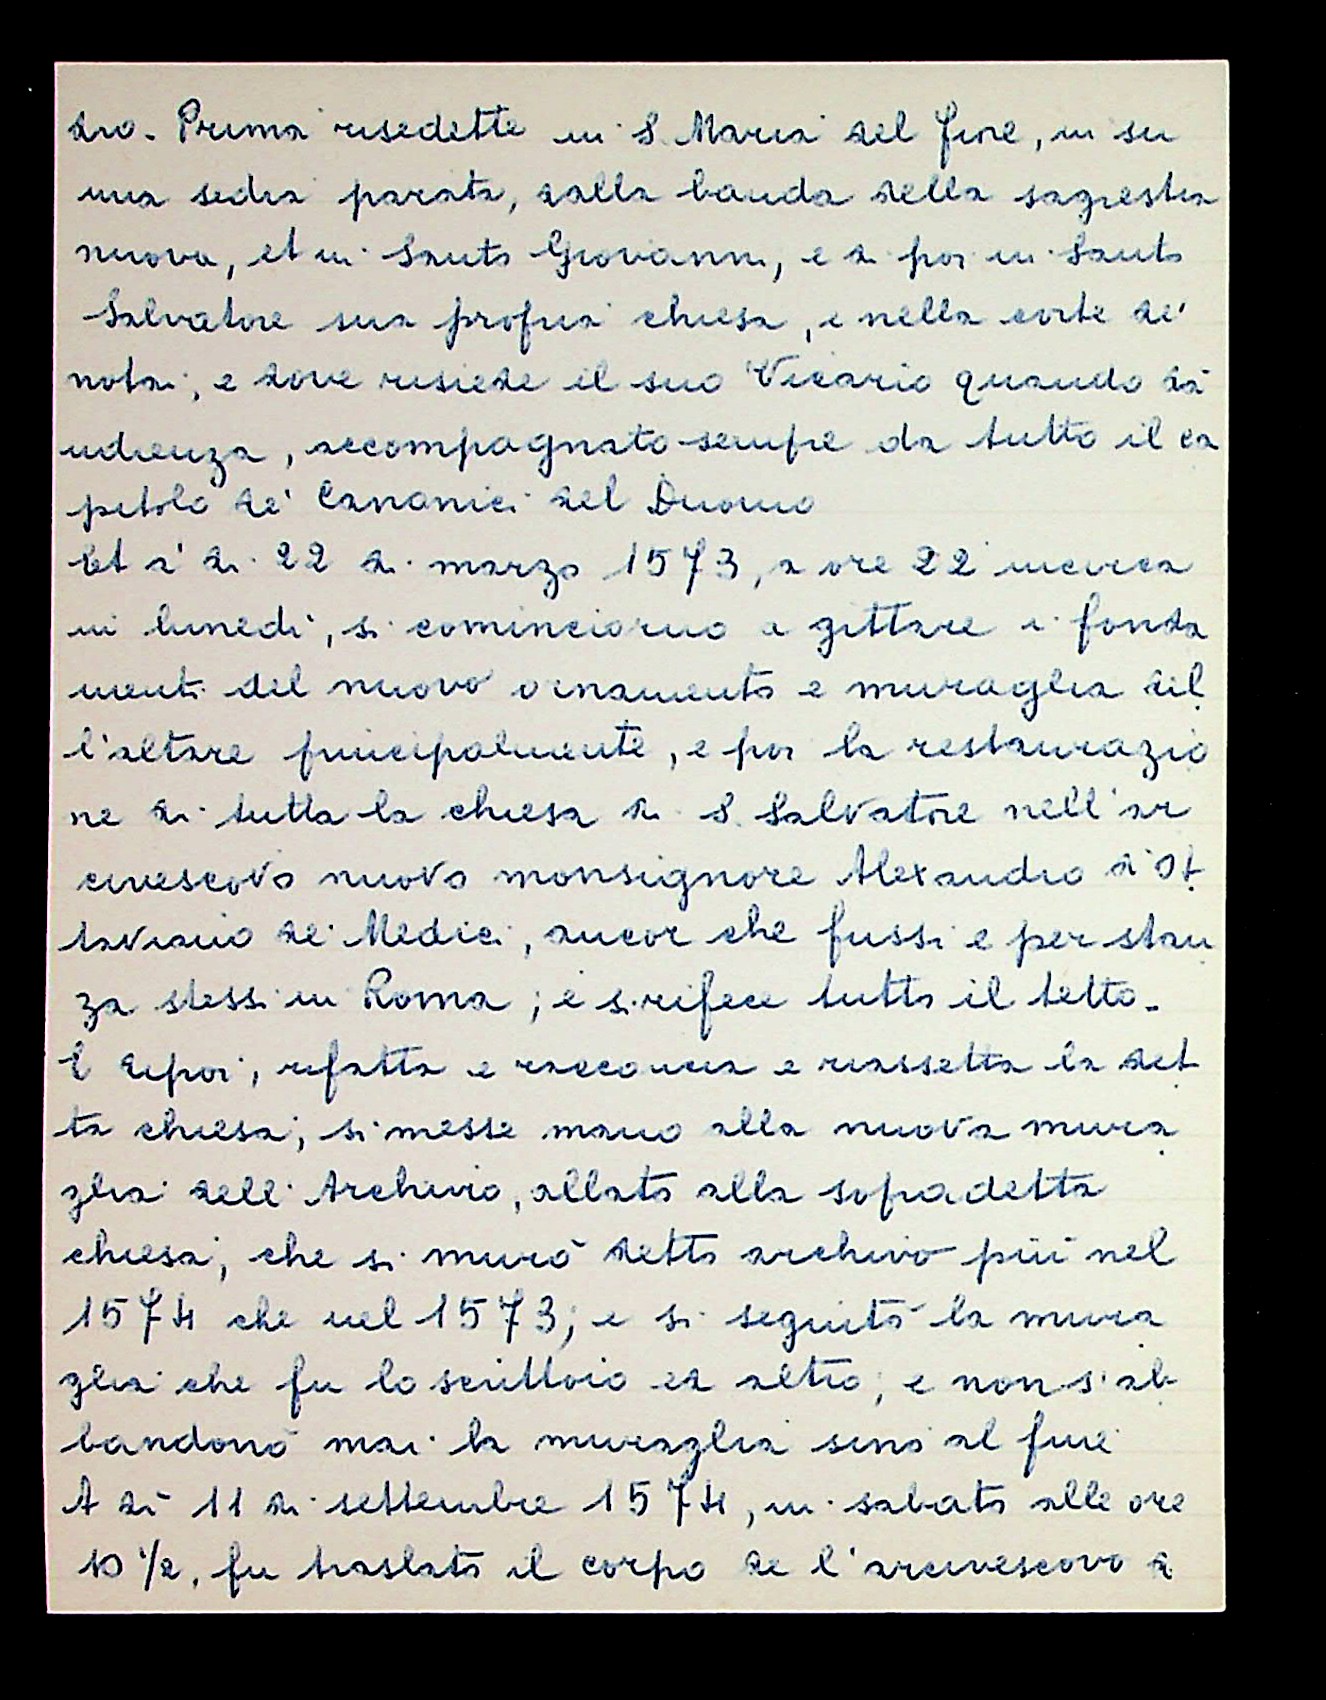 dro. Prima risedette in S. Maria del fiore, in su
una sedia parata, dalla banda della sagrestia
nuova, et in Santo Giovanni, e di poi in Santo
Salvatore sua propria chiesa, e nella corte de'
notai, e dove risiede il suo Vicario quando dà
udienza, accompagnato sempre da tutto il ca
pitolo de' Cananici del Duomo
Et a' dì 22 di marzo 1573, a ore 22 incirca
in lunedì, si cominciorno a gittare i fonda
menti del nuovo ornamento e muraglia del
l'altare principalmente, e poi la restaurazio
ne di tutta la chiesa di S. Salvatore nell'ar
civescovo nuovo monsignore Alexandro d'Ot
taviano de' Medici, ancor che fussi e per stan
za stessi in Roma; e si rifece tutto il tetto.
E dipoi, rifatta e racconcia e riassetta la det
ta chiesa, si messe mano alla nuova mura
glia dell'Archivio, allato alla sopradetta
chiesa, che si murò detto archivio più nel
1574 che nel 1573; e si seguitò la mura
glia che fu lo scrittoio ed altro; e non s'ab
bandonò mai la muraglia sino al fine
A dì 11 di settembre 1574, in sabato alle ore
10 1/2, fu traslato il corpo de l'arcivescovo A